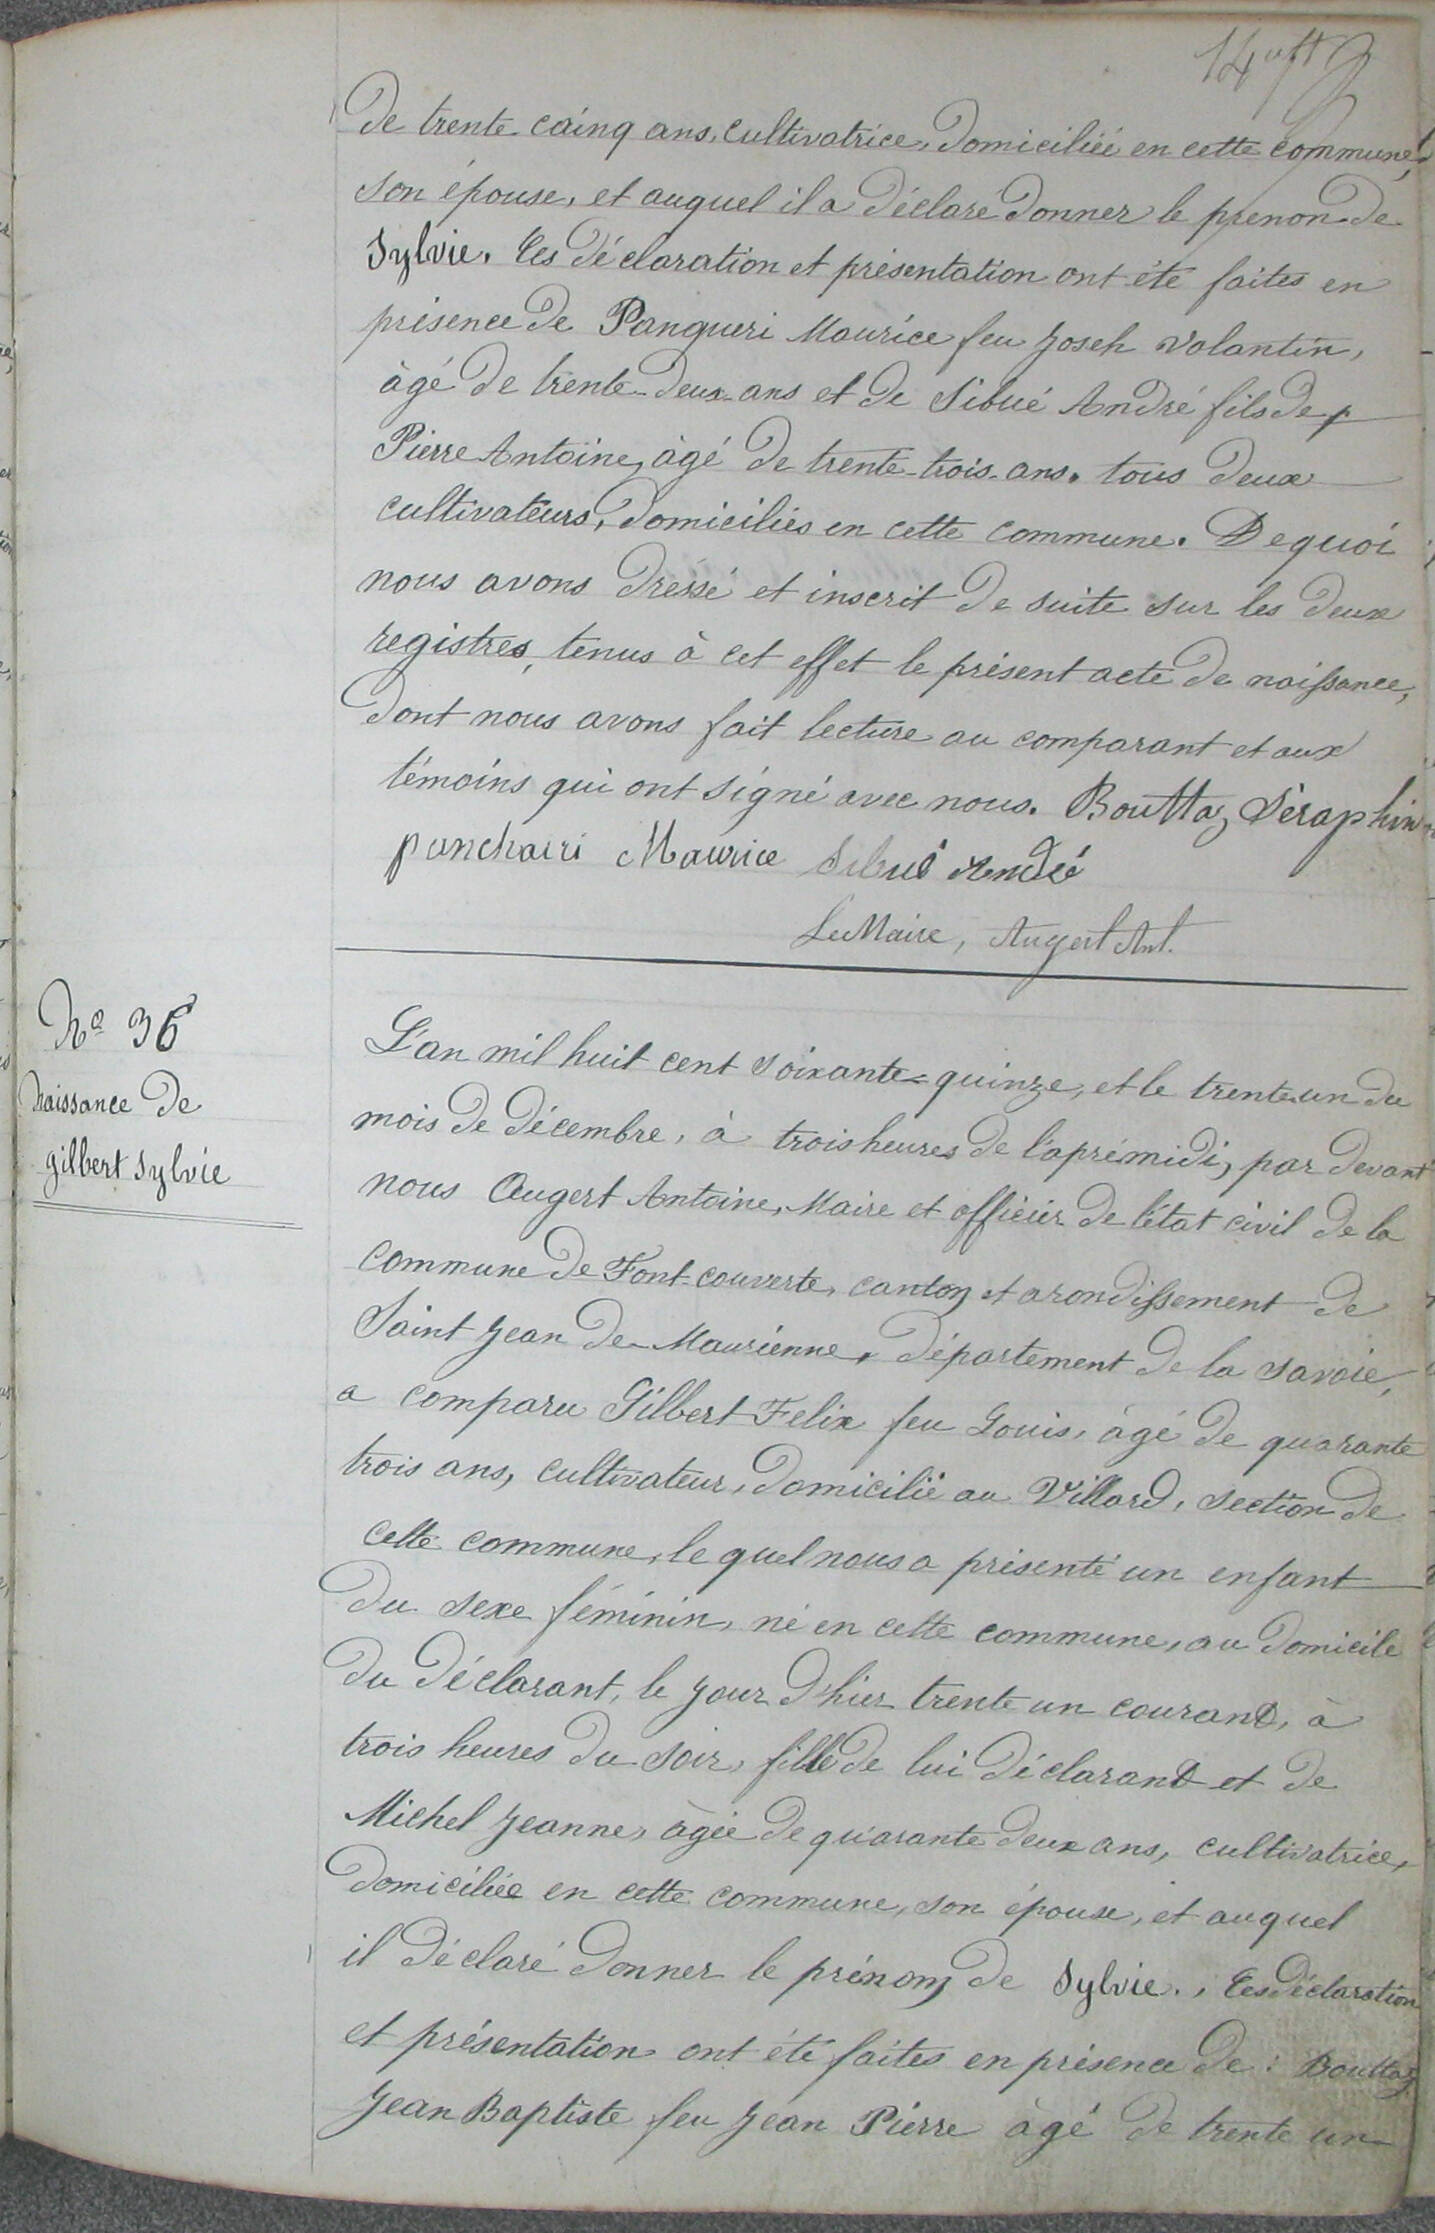 14
de trente-caing ans, cultivatrice, domiciliée en cette commune,
son épouse, et auquel il a déclaré donner le prenon de
Sylvie. Ces déclaration et présentation ont été faites en
présence de Pangueri Maurice feu Joseh Volantin,
âgé de trente-deux-ans et de Sibué André fils de
Pierre Antoine, âgé de trente-trois-ans. tous deux
cultivateurs, domiciliés en cette commune. De quoi
nous avons dressé et inscrit de suite sur les deux
registres, tenus à cet effet le présent acte de naissance,
dont nous avons fait lecture au comparant et aux
témoins qui ont signé avec nous. Bouttaz Séraphin
panchairi Maurice Sibué André
Le Maire, Augert Ant.
No 36
Naissance de
gilbert Sylvie
L'an mil huit cent soixante-quinze, et le trente un du
mois de décembre, à trois heures de l'aprémidi, par devant
nous Augert Antoine, Maire et officier de l'état civil de la
commune de Font-couverte, canton et arondissement de
Saint Jean de Maurienne, département de la savoie,
a comparu Gilbert Felix feu Louis, âgé de quarante
trois ans, cultivateur, domicilié au Villard, section de
cette commune, le quel nous a présenté un enfant
du sexe féminin, né en cette commune, au domicile
du déclarant, le jour d'hier trente un courant, à
trois heures du soir, fille de lui déclarant et de
Michel Jeanne, âgée de quarante deux ans, cultivatrice,
domiciliée en cette commune, son épouse, et auquel
il déclaré donner le prénom de Sylvie., Ces déclaration
et présentation ont été faites en présence de : Bouttaz
Jean Baptiste feu Jean Pierre âgé de trente un